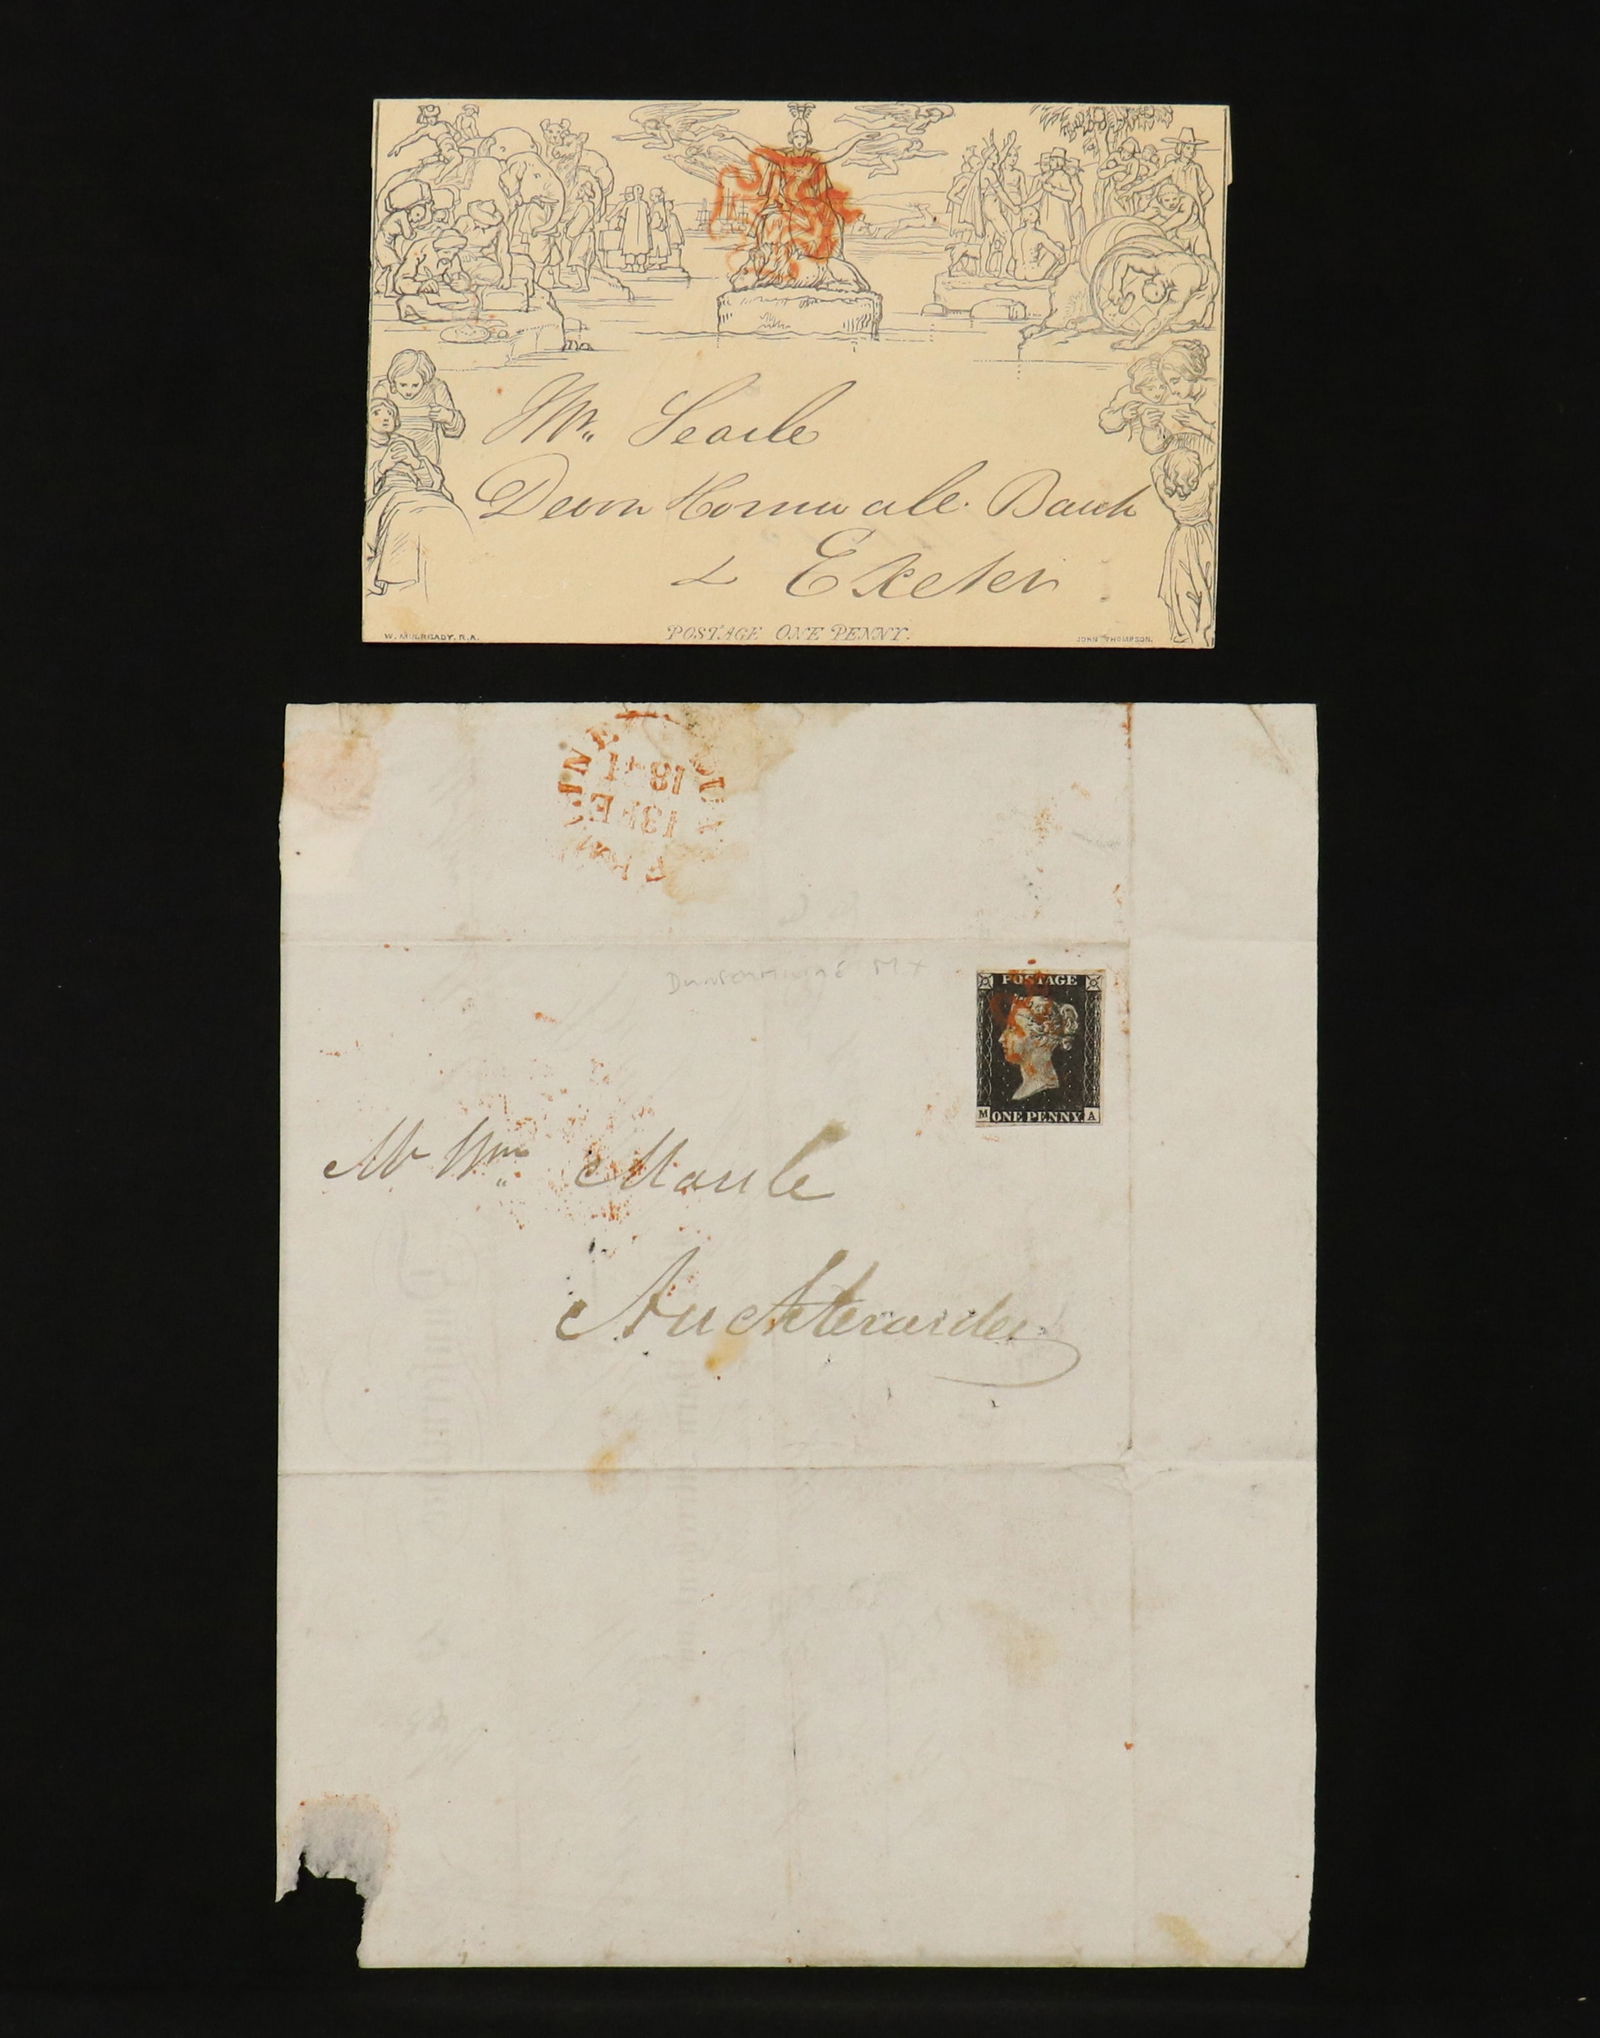 Mr. Searle
Devon Cornwale. Bank
Exeter
W. MULREADY, R.A.
POSTAGE ONE PENNY.
JOHN THOMPSON.
1841
13 FE
Dunfermline MX
POSTAGE
M ONE PENNY. A
Mr Wm. Maule
Auchterarder